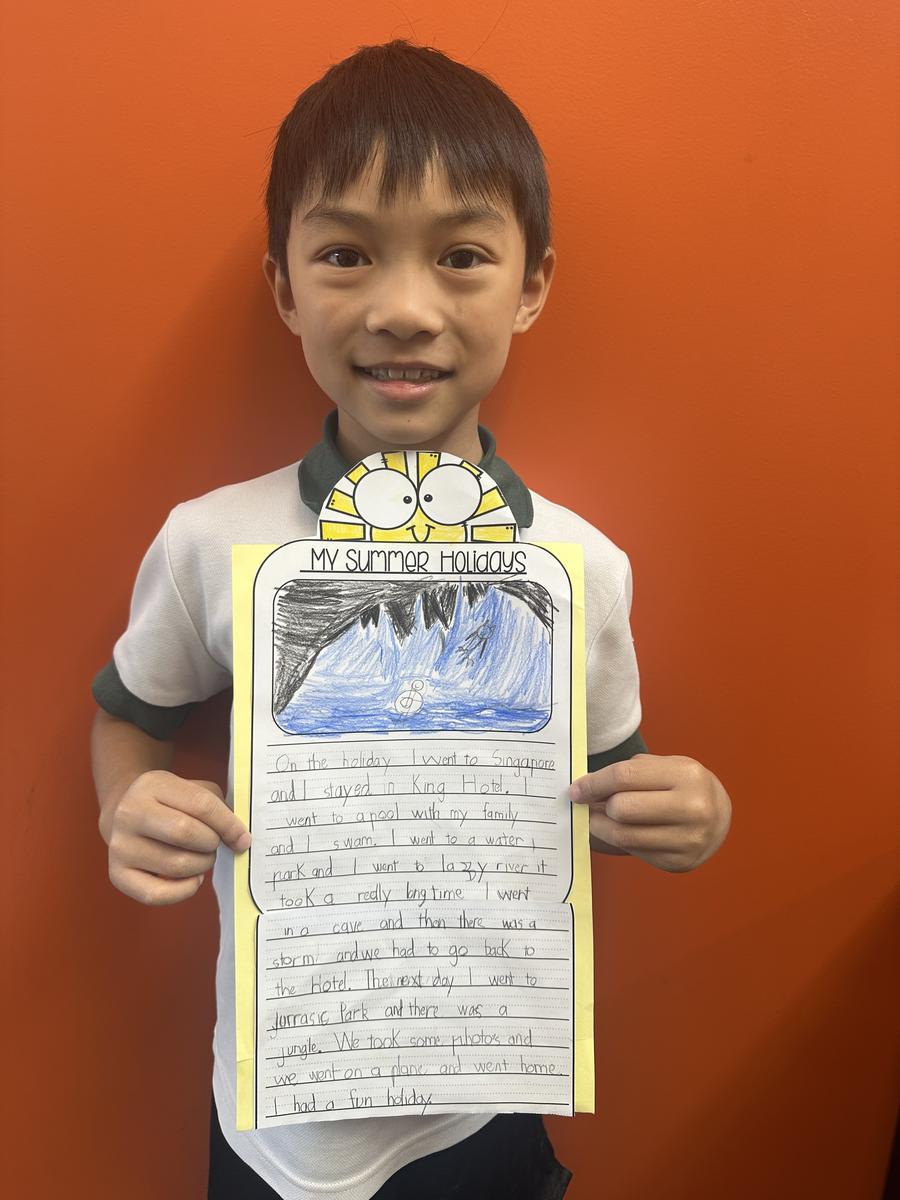 MY SUMMER HOLIDAYS
On the holiday I went to Singapore
and I stayed in King Hotel. I
went to a pool with my family
and I swam. I went to a water
park and I went to lazzy river it
took a redly long time I went
in a cave and than there was a
storm and we had to go back to
the Hotel. The next day I went to
Jurrasic Park and there was a
jungle. We took some photos and
we went on a plane and went home.
I had a fun holiday.